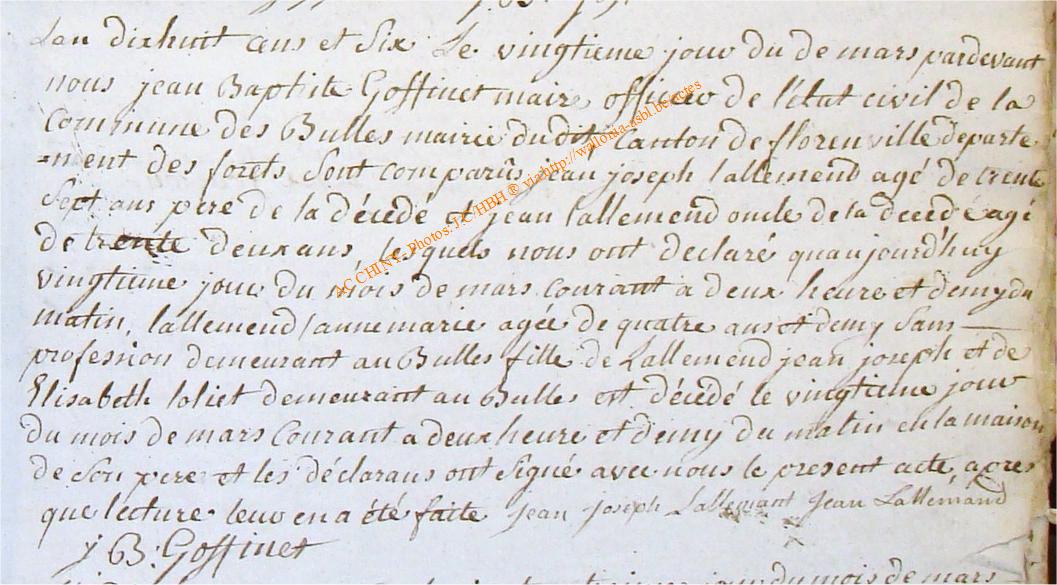 Lan dixhuit cens et six Le vingtieme jour du de mars pardevant
nous jean Baptiste Goffinet maire officier de l'état civil de la
Commune des Bulles mairie dudit Canton de florenville departe
=ment des forets Sont comparus jean joseph lallemend agé de trente
Sept ans pere de la décédé et jean lallemend oncle de la decedé agé
de trente deux ans, lesquels nous ont declaré quaujourd'huy
vingtieme jour du mois de mars courant a deux heure et demy du
matin, lallemend annemarie agée de quatre ans et demy Sans
profession demeurant au Bulles fille de Lallemend jean joseph et de
Elisabeth loliet demeurant au Bulles est décédé le vingtieme jour
du mois de mars Courant a deux heure et demy du matin en la maison
de Son pere et les déclarans ont Signé avec nous le present acte apres
que lecture leur en a été faite jean joseph Lallemant Jean Lallemand
j B: Goffinet
jour du mois de mars
AC CHINY - Photos: J.C HBH ® via http://wallonia-asbl.be/actes